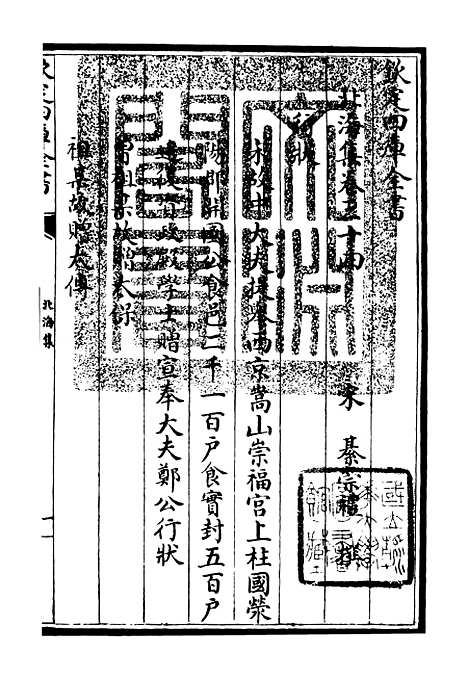 欽定四庫全書
北海集卷三十四
宋 綦崇禮 撰
行狀
宋故中大夫提舉西京嵩山崇福宮上柱國滎
陽郡開國公食邑二千一百戶食實封五百戶
資政殿學士贈宣奉大夫鄭公行狀
曾祖杲故贈太保
祖 故贈太傅
欽定四庫全書
北海集
一